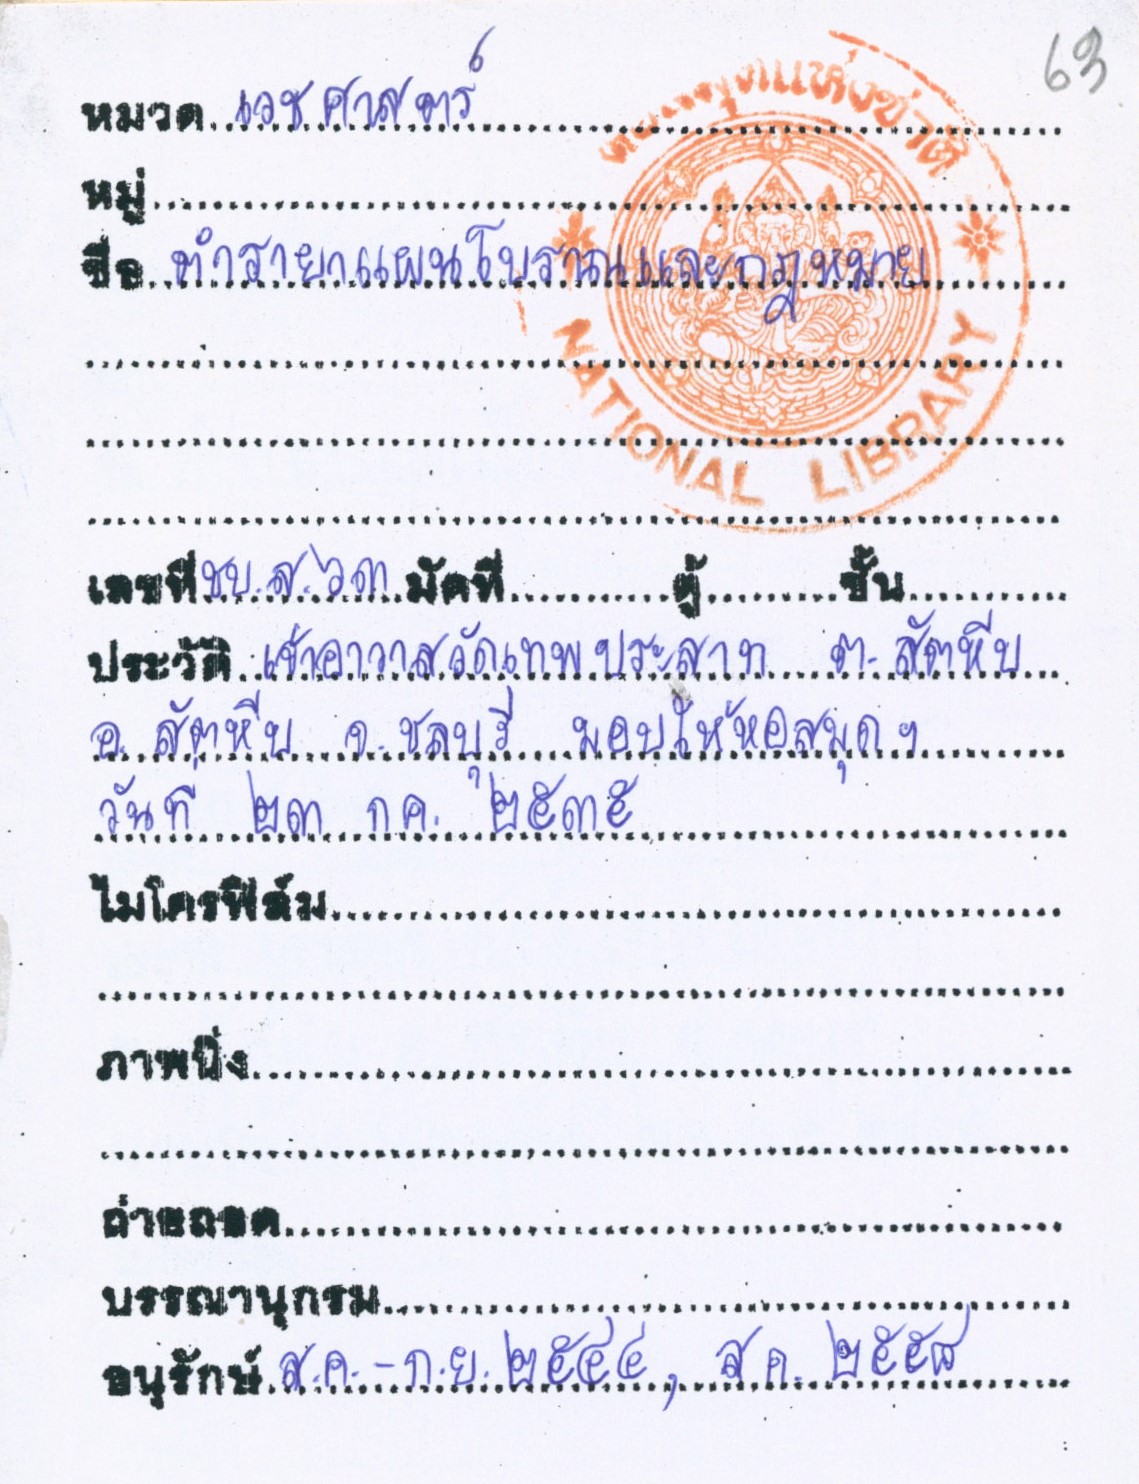 63
หอสมุดแห่งชาติ
NATIONAL LIBRARY
หมวด เวชศาสตร์
หมู่
ชื่อ ตำรายาแผนโบราณและกฎหมาย
เลขที่ ชบ.ส.๖๓ มัดที่ ตู้ ชั้น
ประวัติ เจ้าอาวาสวัดเทพประสาท ต. สัตหีบ
อ. สัตหีบ จ. ชลบุรี มอบให้หอสมุดฯ
วันที่ ๒๓ กค. ๒๕๓๕
ไมโครฟิล์ม
ภาพนิ่ง
ถ่ายถอด
บรรณานุกรม
อนุรักษ์ ส.ค.-ก.ย. ๒๕๔๔, ส.ค. ๒๕๕๘